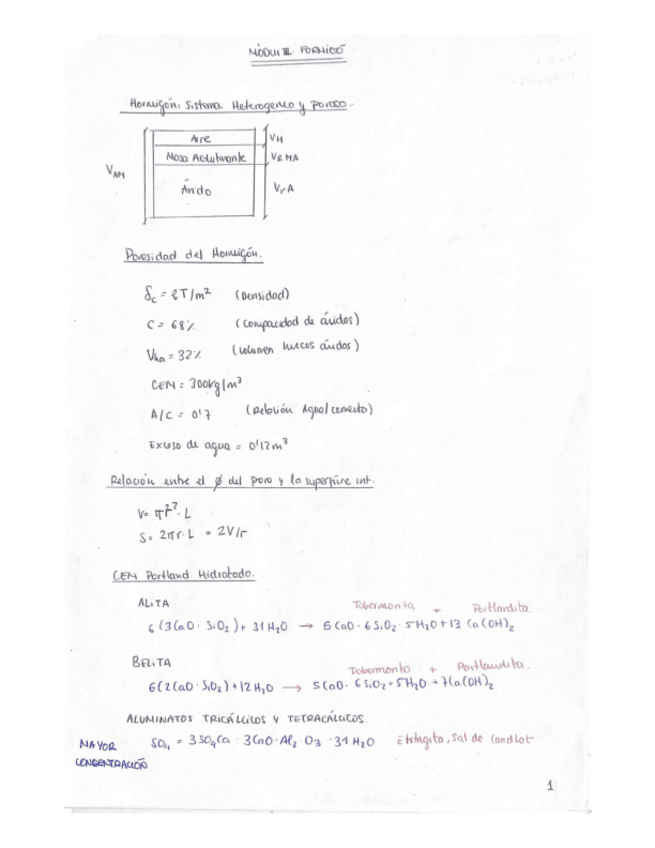 MÓDULO III FORMICÓ
Hormigón: Sistema Heterogeneo y poroso.
Aire
VH
Masa Aglutinante
VRMA
VAM
Árido
VrA
Porosidad del Hormigón.
δc = 2T/m² (Densidad)
C = 68% (Compacidad de áridos)
Vha = 32% (Volumen huecos áridos)
CEM = 300kg/m³
A/C = 0'7 (Relación Agua/cemento)
Exceso de agua = 0'12m³
Relación entre el ø del poro y la superficie int.
V = πr² · L
S = 2πr·L = 2V/r
CEM Portland Hidratado.
ALITA
Tobermonta + Portlandita
6(3CaO · SiO₂) + 31H₂O → 5CaO · 6SiO₂ · 5H₂O + 13 Ca(OH)₂
BELITA
Tobermonto + Portlandita.
6(2CaO · SiO₂) + 12H₂O → 5CaO · 6SiO₂ · 5H₂O + 7Ca(OH)₂
ALUMINATOS TRICÁLCICOS Y TETRACÁLCICOS.
MAYOR CONCENTRACIÓN
SO₄ = 3SO₄Ca · 3CaO · Al₂ · O₃ · 31H₂O Etringita, Sal de Candlot
1